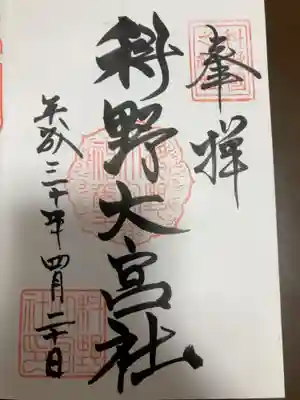 奉拝
科野大宮社
平成三十年四月二十日